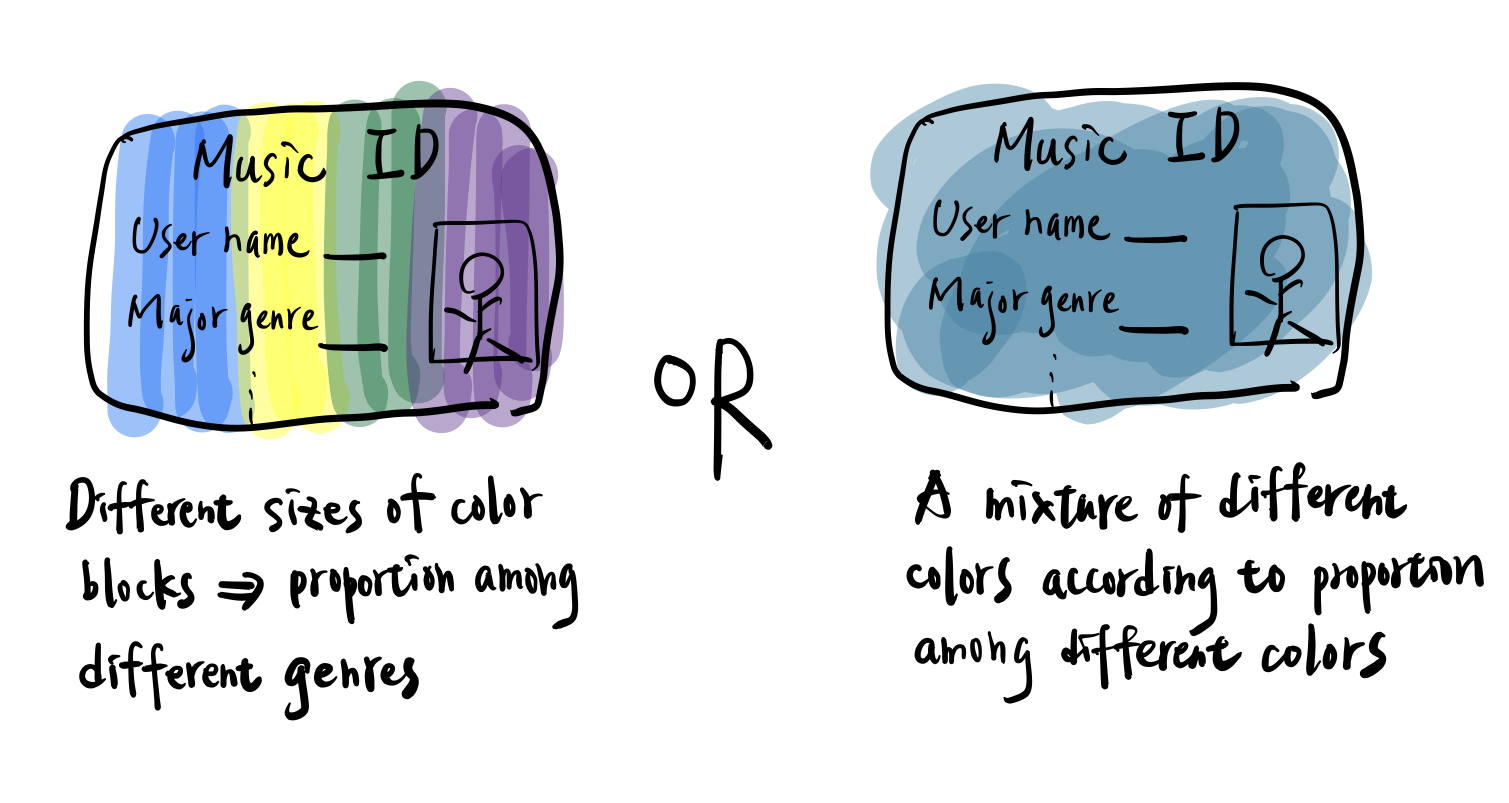 Music ID
User name
Major genre
Different sizes of color
blocks ⇒ proportion among
different genres
OR
Music ID
User name
Major genre
A mixture of different
colors according to proportion
among different colors